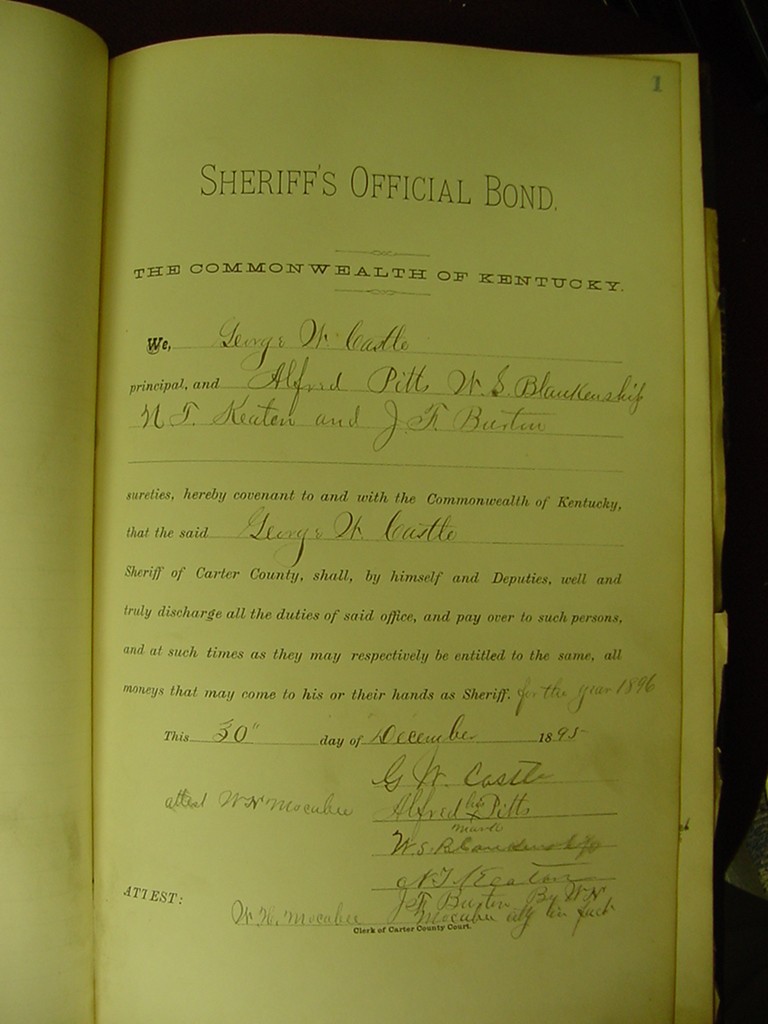 1
SHERIFF'S OFFICIAL BOND.
THE COMMONWEALTH OF KENTUCKY.
We, George W. Castle
principal, and Alfred Pitts W. S. Blankenship
N T. Keaton and J. F. Burton
sureties, hereby covenant to and with the Commonwealth of Kentucky,
that the said George W. Castle
Sheriff of Carter County, shall, by himself and Deputies, well and
truly discharge all the duties of said office, and pay over to such persons,
and at such times as they may respectively be entitled to the same, all
moneys that may come to his or their hands as Sheriff. for the year 1896
This 30" day of December 1895
G W. Castle
attest W H Mocabee Alfred his x mark Pitts
W. S. Blankenship
N T Keaton
J F Burton By W H
ATTEST: W. H. Mocabee Mocabee aty in fact
Clerk of Carter County Court.